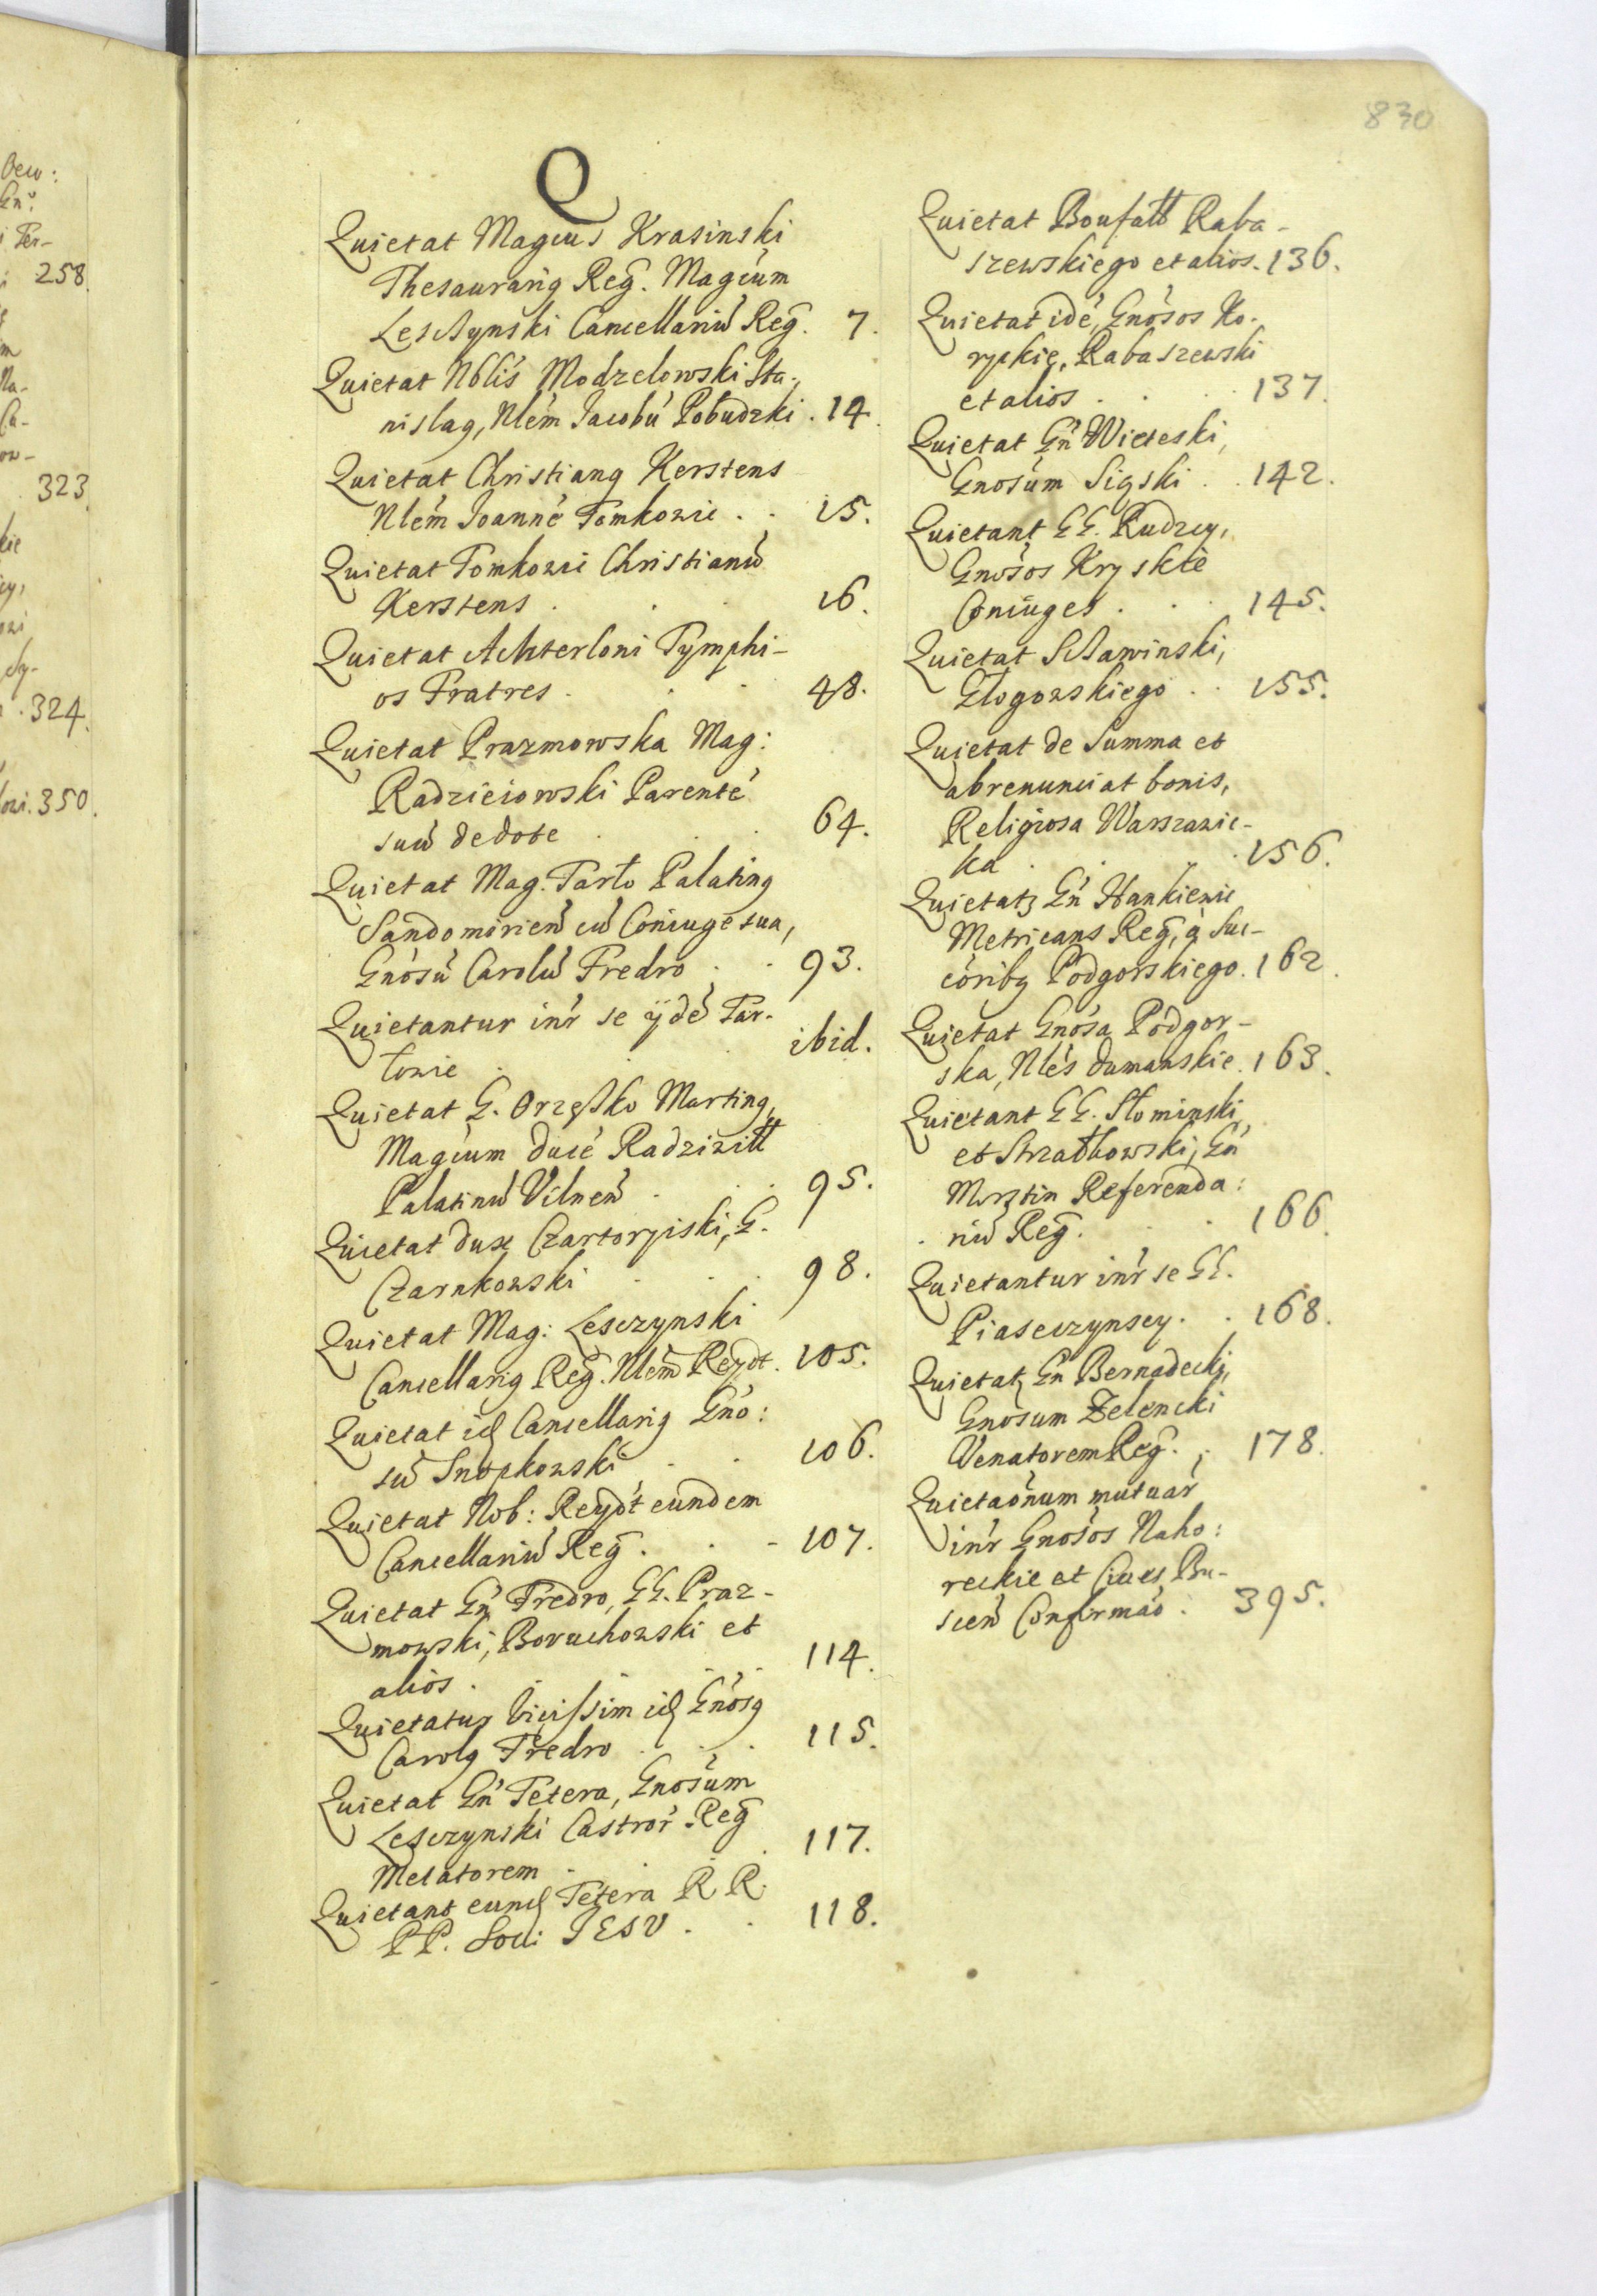 830
Q
Quietat Magcus Krasinski
Thesaurarig Reg. Magcum
Lesczynski Cancellariu Reg. 7.
Quietat Nblis Modzelowski Sta-
nislag, Nlem Jacobu Pobudzki . 14.
Quietat Christiang Kerstens
Nlem Joanne Tomkowic . . 15.
Quietat Tomkowic Christianu
Kerstens . . . 16.
Quietat Achterloni Tymphi-
os Fratres . . . 48.
Quietat Prazmowska Mag:
Radzieiowski Parente
suu de dote . . . 64.
Quietat Mag. Tarło Palating
Sandomirien cu Coniuge sua,
Gnosu Carolu Fredro . . 93.
Quietantur inr se ijde Tar-
towie . . . ibid.
Quietat G. Orzeszko Marting,
Magcum duce Radziwiłł
Palatinu Vilnen . . . 95.
Quietat dux Czartoryiski, G.
Czarnkowski . . . 98.
Quietat Mag: Lesczynski
Cancellarig Reg. Nlem Reydt. 105.
Quietat id Cancellarig Gno:
su Snopkowski . . 106.
Quietat Nob: Reydt eundem
Cancellariu Reg . . - 107.
Quietat Gn Fredro, GG. Praz-
mowski, Boruchowski et
alios . . . 114.
Quietatur vicissim id Gnosg
Carolg Fredro . . . 115.
Quietat Gn Tetera, Gnosum
Lesczynski Castror Reg
Metatorem . . . 117.
Quietant eund Tetera R R.
PP. Soci JESV . . 118.
Quietat Boufałł Raba-
szewskiego et alios. 136.
Quietat ide, Gnosos Ko-
ryckie, Rabaszewski
et alios . . . 137.
Quietat Gn Witeski,
Gnosum Sigski . . 142.
Quietant GG. Rudzcy,
Gnosos Kryskie
Coniuges . . . 145.
Quietat Sczawinski,
Głogowskiego . . 155.
Quietat de Summa et
abrenunciat bonis,
Religiosa Warszawic-
ka . . . 156.
Quietatz Gn Hankiewic
Metricans Reg, a Suc-
coribg Podgorskiego. 162.
Quietat Gnosa Podgor-
ska, Nles Dumanskie. 163.
Quietant GG. Słominski
et Strzałkowski, Gn
Morstin Referenda:
riu Reg. . . 166.
Quietantur inr se GG.
Piaseczynscy. . 168.
Quietat Gn Bernadecki,
Gnosum Zelencki
Venatorem Reg. . 178.
Quietaonum mutuar
inr Gnosos Naho:
reckie et Ciues Bu-
scen Confirmao. 395.
258.
323.
324.
350.